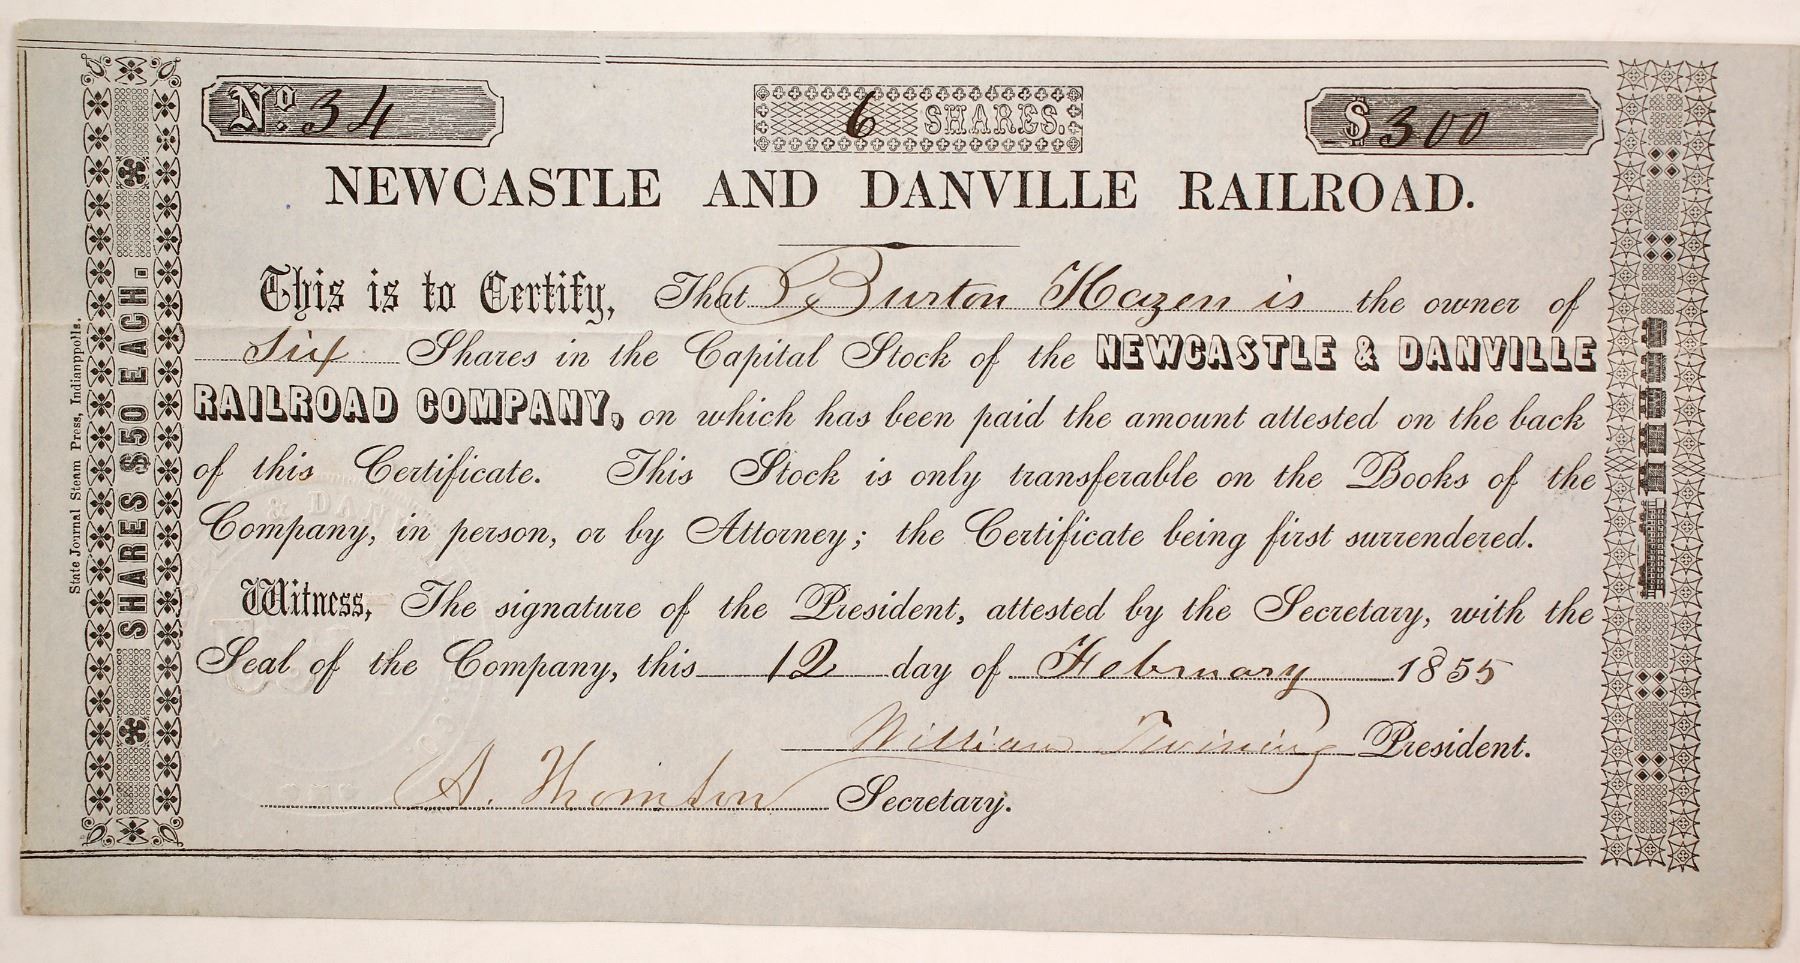 No. 34
6 SHARES.
$ 300
NEWCASTLE AND DANVILLE RAILROAD.
This is to Certify, That Burton Hazen is the owner of
Six Shares in the Capital Stock of the NEWCASTLE & DANVILLE
RAILROAD COMPANY, on which has been paid the amount attested on the back
of this Certificate. This Stock is only transferable on the Books of the
Company, in person, or by Attorney; the Certificate being first surrendered.
Witness, The signature of the President, attested by the Secretary, with the
Seal of the Company, this 12 day of February 1855
William Twining President.
A. Thornton Secretary.
SHARES $50 EACH.
State Journal Steam Press, Indianppolls.
& DAN